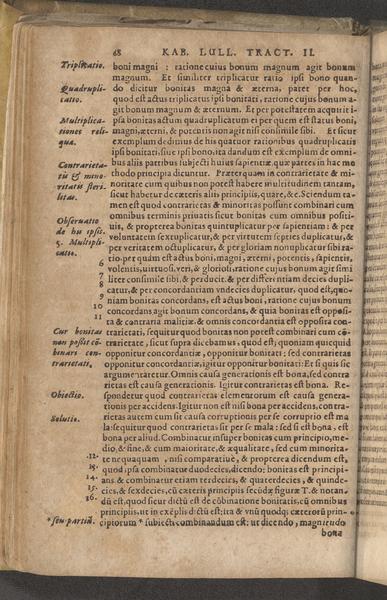 68 KAB. LULL. TRACT. II.
Triplicatio.
boni magni : ratione cuius bonum magnum agit bonum
magnum. Et similiter triplicatur ratio ipsi bono quan-
Quadrupli-
catio.
do dicitur bonitas magna & æterna, patet per hoc,
quod est actus triplicatus ipsi bonitati, ratione cuius bonum a-
git bonum magnum & æternum. Et per potestatem acquirit i-
Multiplica-
tiones reli-
quæ.
psa bonitas actum quadruplicatum et per quem est status boni,
magni, æterni, & potentis non agit nisi consimile sibi. Et sicut
exemplum dedimus de his quatuor rationibus quadruplicatis
ipsi bonitati, siue ipsi bono, ita dandum est exemplum de omni-
Contrarieta-
tis & mino-
ritatis steri-
litas.
bus aliis partibus subiecti huius sapientiæ, quæ partes in hac me
thodo principia dicuntur. Præterquam in contrarietate & mi-
noritate cum quibus non potest habere multitudinem tantam,
sicut habetur de cæteris aliis principiis, quare, &c. Sciendum ta-
men est quod contrarietas & minoritas possunt combinari cum
omnibus terminis priuatis sicut bonitas cum omnibus positi-
Obseruatio
de his ipsis.
5. Multipli-
catio.
uis, & propterea bonitas quintuplicatur per sapientiam : & per
voluntatem sextuplicatur, & per virtutem septies duplicatur, &
per veritatem octuplicatur, & per gloriam nonuplicatur sibi ra-
tio, per quam est actus boni, magni, æterni, potentis, sapientis,
6
volentis, virtuosi, veri, & gloriosi, ratione cuius bonum agit simi
7
liter consimile sibi, & producit. & per differentiam decies dupli-
8
catur, & per concordantiam vndecies duplicatur, quod est, quo-
9
niam bonitas concordans, est actus boni, ratione cuius bonum
10
concordans agit bonum concordans, & quia bonitas est opposi-
11
ta & contraria malitiæ, & omnis concordantia est opposita con-
Cur bonitas
non possit cō-
binari con-
trarietati,
trarietati, sequitur quod bonitas non potest combinari cum cō-
trarietate, sicut supra dicebamus, quod est; quoniam quicquid
opponitur concordantiæ, opponitur bonitati : sed contrarietas
opponitur concordantiæ, igitur opponitur bonitati : Et si quis sic
Obiectio.
argumentaretur. Omnis causa generationis est bona, sed contra
rietas est causa generationis. Igitur contrarietas est bona. Re-
Solutio.
spondetur quod contrarietas elementorum est causa genera-
tionis per accidens. Igitur non est nisi bona per accidens, contra-
rietas autem cum sit causa corruptionis per se corruptio est ma
la : sequitur quod contrarietas sit per se mala : sed si est bona, est
bona per aliud. Combinatur insuper bonitas cum principio, me-
dio, & fine, & cum maioritate, & æqualitate, sed cum minorita-
12.
te nequaquam, nisi comparatiuè, & propterea dicendum est,
13.
quod ipsa combinatur duodecies, dicendo : bonitas est principi-
14.
ans, & combinatur etiam terdecies, & quaterdecies, & quinde-
15.
cies, & sexdecies, cū cæteris principiis secūdū figuræ T. & notan-
16.
dū est, quod sicut dictū est de cōbinatione bonitatis, cū omnibus
principiis, ut in exēplis dictū est; ita & vnū quodq; cæterorū prin-
*seu partiū.
cipiorum * subiecti combinandum est : ut dicendo, magnitudo
bona